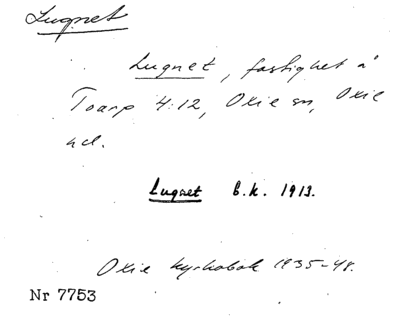 Lugnet
Lugnet, fastighet å
Toarp 4:12, Oxie sn, Oxie
hd.
Lugnet b.k. 1913.
Oxie kyrkobok 1935-48.
Nr 7753